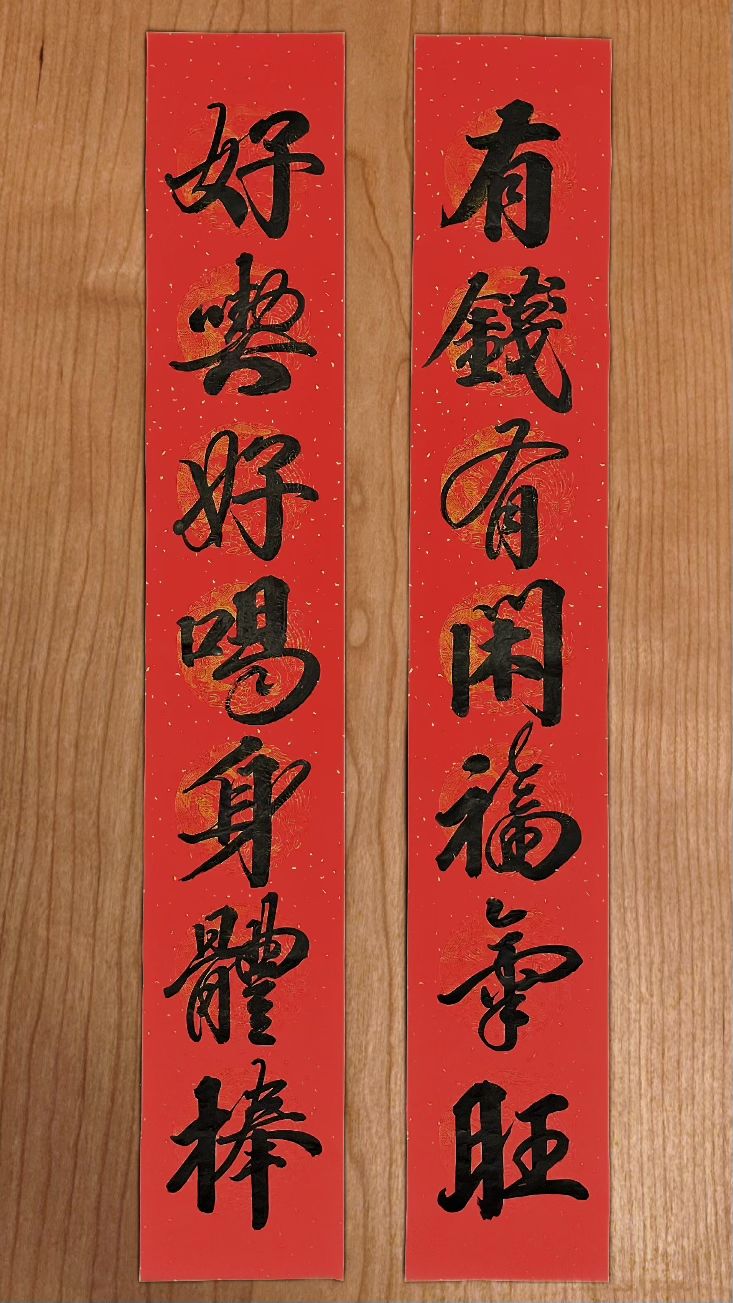 有錢有閑福氣旺
好喫好喝身體棒